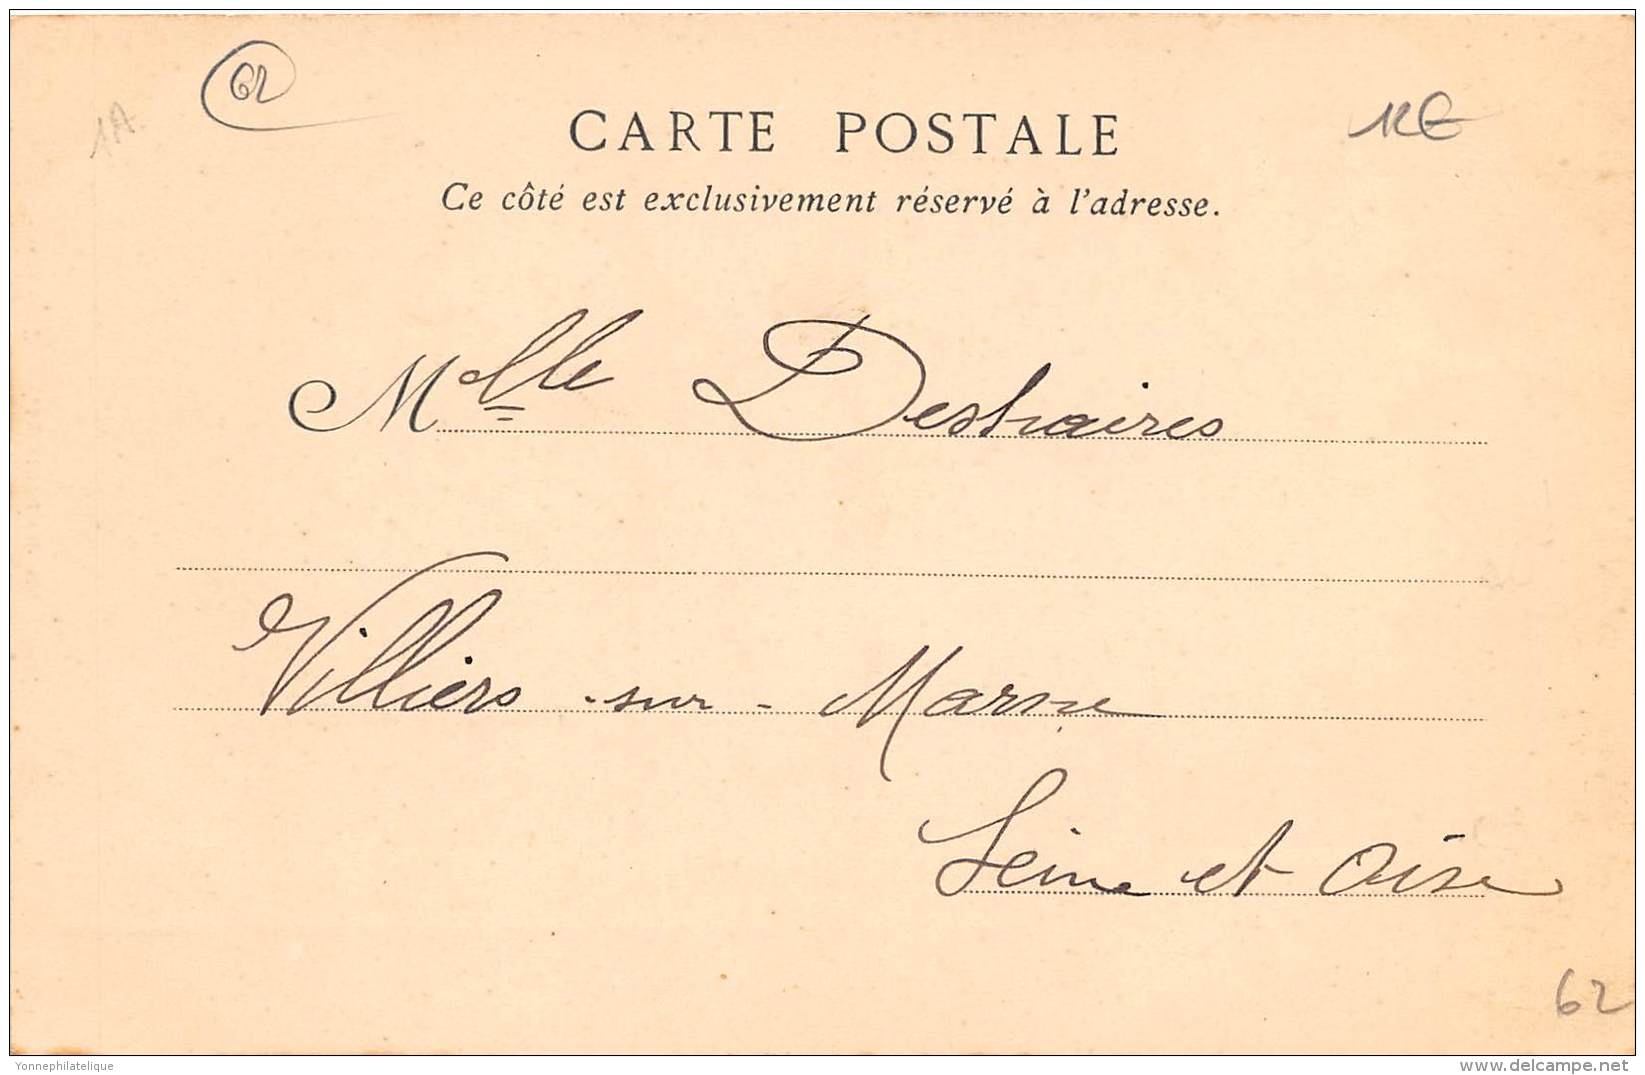 62
1A.
CARTE POSTALE
12€
Ce côté est exclusivement réservé à l'adresse.
Melle Deshaires
Villiers-sur-Marne
Seine et Oise
62
Yonnephilatelique
www.delcampe.net